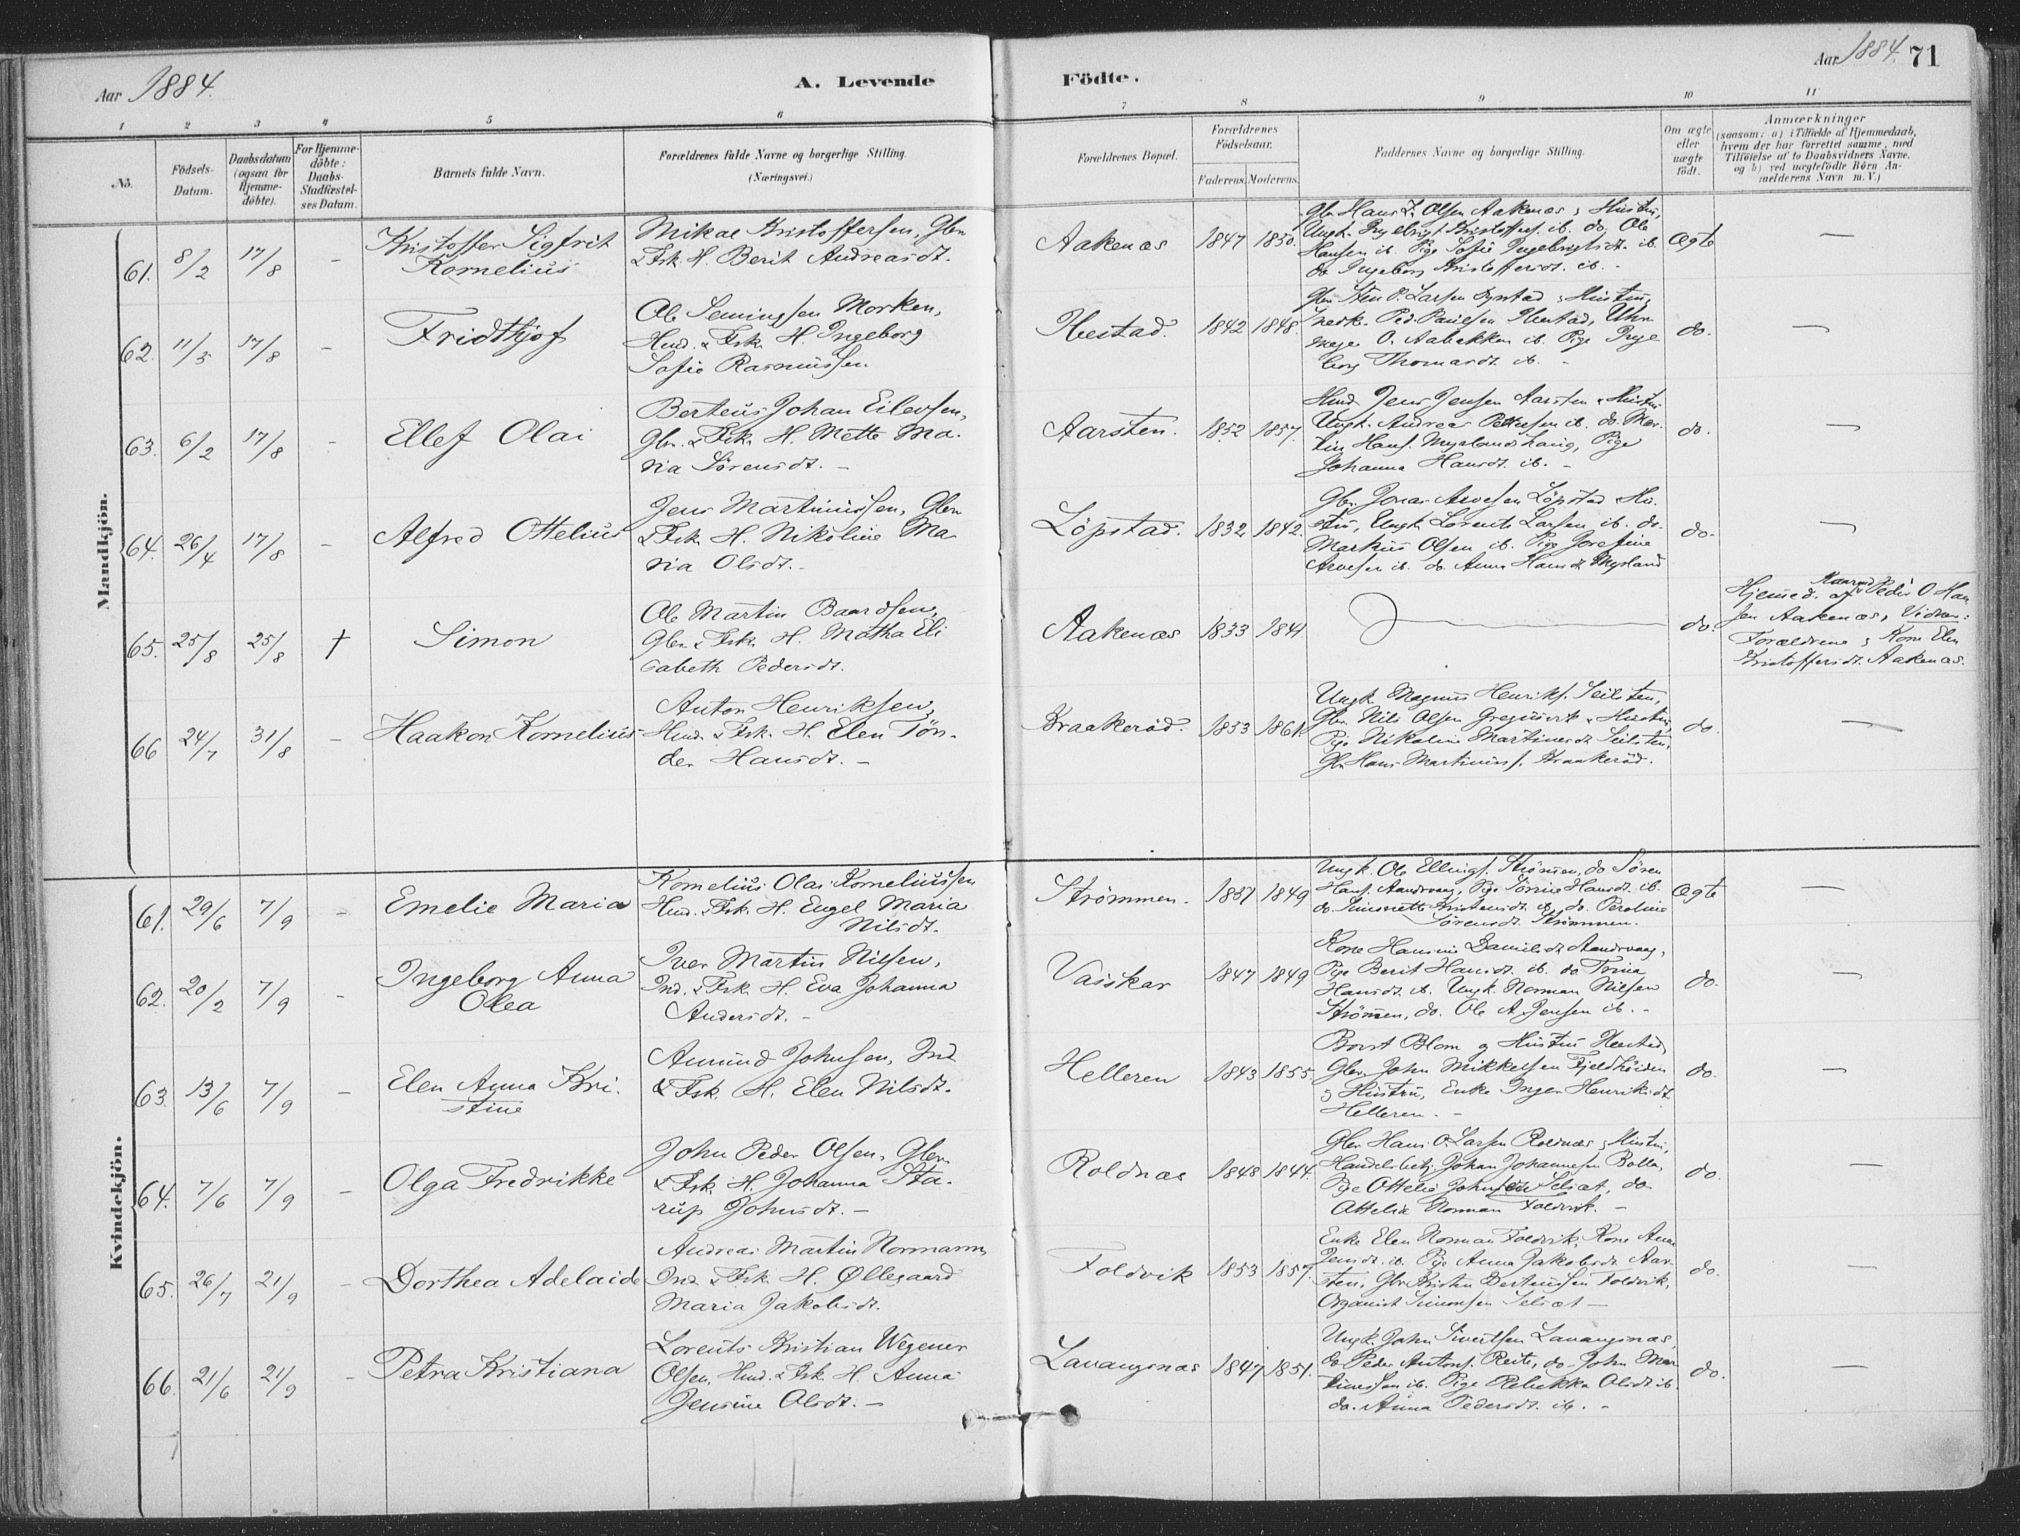 Aar 1884.
A. Levende
Födte.
Aar 1884. 71
1 2 3 4 5 6 7 8 9 10 11
No.
Födsels-Datum.
Daabsdatum (ogsaa for Hjemme-döbte).
For Hjemme-döbte: Daabs-Stadfæstel-ses Datum.
Barnets fulde Navn.
Forældrenes fulde Navne og borgerlige Stilling. (Næringsvei.)
Forældrenes Bopæl.
Forældrenes Födselsaar.
Faderens. Moderens.
Faddernes Navne og borgerlige Stilling.
Om ægte eller uægte födt.
Anmærkninger
(saasom: a) i Tilfælde af Hjemmedaab,
hvem der har forrettet samme, med
Tilföielse af to Daabsvidners Navne.
og b) ved uægtefödte Börn An-
melderens Navn m. V.)
Mandkjön.
61. 8/2 17/8 - Kristoffer Sigfrit
Kornelius
Mikal Kristoffersen, Gbr.
& Fsk. H. Berit Andreasdt.
Aakenæs 1847 1850.
Gbr. Hans Olsen Aakenæs & Hustru,
Ungk. Kristoffers. ib. do. Ole
Hansen ib. Pige Sofie Ingebrigtsdt. ib.
do Ingeborg Kristoffersdt. ib. -
Ægte -
62. 11/5 17/8 - Fridthjof
Ole Semingsen Morken,
Hmd. & Fsk. H. Ingeborg
Sofie Rasmussen
Ibestad. 1842 1848.
Larsen & Hustru,
Ped. Paulsen Ibestad, Uhr-
mager O. Aabakken ib. Pige Inge
borg Thomasdt. ib. -
do. -
63. 6/2 17/8 - Ellef Olai
Berteus Johan Eilevsen,
Gbr. & Fsk. H. Mette Ma-
ria Sörensdt. -
Aarsten. 1832 1857.
Hmd. Jens Jensen Aarsten & Hustru
Ungk. Andreas Pettersen ib. do. Mar-
tin Hans. Myrlandshaug, Pige
Johanna Hansdt. ib. -
do. -
64. 26/4 17/8 - Alfred Ottelius
Jens Martinussen, Gbr.
& Fsk. H. Nikoline Ma-
ria Olsdt. -
Löpstad. 1832 1842.
Gbr. Jonas Arvesen Löpstad & Hu-
stru, Ungk. Lorents Larsen ib. do.
Markus Olsen ib. Pige Josefine
Arvesen ib. do. Anna Hansdt. Myrland
do. -
65. 25/8 25/8 † Simon
Ole Martin Baardsen,
Gbr. & Fsk. H. Martha Eli
sabeth Pedersdt.
Aakenæs 1833 1841.
do.
Hjemmed. af Peder O. Han
sen Aakenæs, Vidner:
Forældrene & Kone Elen
Kristoffersdt. Aakenæs.
66 24/7 31/8 - Haakon Kornelius
Anton Henriksen,
Hmd. & Fsk. H. Elen Tön-
der Hansdt. -
Kraakeröd. 1853 1861.
Ungk. Magnus Henriks. Seilsten,
Gbr. Nils Olsen Gregusvik & Hustru,
Pige Nikoline Martinusdt. Seilsten,
Gbr. Hans Martinus. Kraakeröd.
do. -
Kvindekjön.
61. 29/6 7/9 - Emelie Maria
Kornelius Olai Korneliussen
Hmd. & Fsk. H. Engel Maria
Nilsdt.
Strömmen. 1857 1849
Ungk. Ole Ellings. Strömmen, do Sören
Hans. Aandvaag, Pige Hansdt. ib.
do. Simonette Kristensdt. ib. do. Peroline
Sörensdt. Strömmen.
Ægte -
62. 20/2 7/9 - Ingeborg Anna
Olea
Iver Martin Nilsen,
Ind. & Fsk. H. Eva Johanna
Andersdt. -
Vasskar 1847 1849
Kone Hansine Danielsdt. Aandvaag,
Pige Berit Hansdt. ib. do Trina
Hansdt. ib. Ungk. Norman Nilsen
Strömmen, do. Ole A. Jensen ib. -
do. -
63. 13/6 7/9 - Elen Anna Kri-
stine
Amund Johnsen, Ind
& Fsk. H. Elen Nilsdt.
Helleren 1843 1855.
Blom og Hustru Ibestad,
Gbr. John Mikkelsen Fjeldhöiden
& Hustru, Enke Inger Henriksdt.
Helleren. -
do. -
64. 7/6 7/9 - Olga Fredrikke
John Peder Olsen, Gbr.
& Fsk. H. Johanna Sta-
rup Johnsdt. -
Roldnæs 1848 1844.
Gbr. Hans O. Larsen Roldnæs & Hustru,
Handelsbetj. Johan Johannesen Bolla,
Pige Ottelie Johnsen Selsæt, do
Ottelia Norman Foldvik. -
do. -
65. 26/7 21/9 - Dorthea Adelaide
Andreas Martin Normann,
Ind. & Fsk. H. Øllegaard
Maria Jakobsdt.
Foldvik 1853 1857.
Enke Elen Norman Foldvik, Kone Anna
Jensdt. ib. Pige Anna Jakobsdt. Aar-
sten, Gbr. Kristen Berteussen Foldvik,
Organist Simonsen Selsæt -
do. -
66. 21/6 21/9 - Petra Kristiana
Lorents Kristian Wegener
Olsen, Hmd. & Fsk. H. Anna
Jensine Olsdt. -
Lavangsnæs 1847 1851.
Ungk. John Sivertsen Lavangsnæs,
do Peder Antons. Reite, do. John Mar
tinussen ib. Pige Rebekka Olsdt. ib.
do. Anna Pedersdt. ib. -
do. -